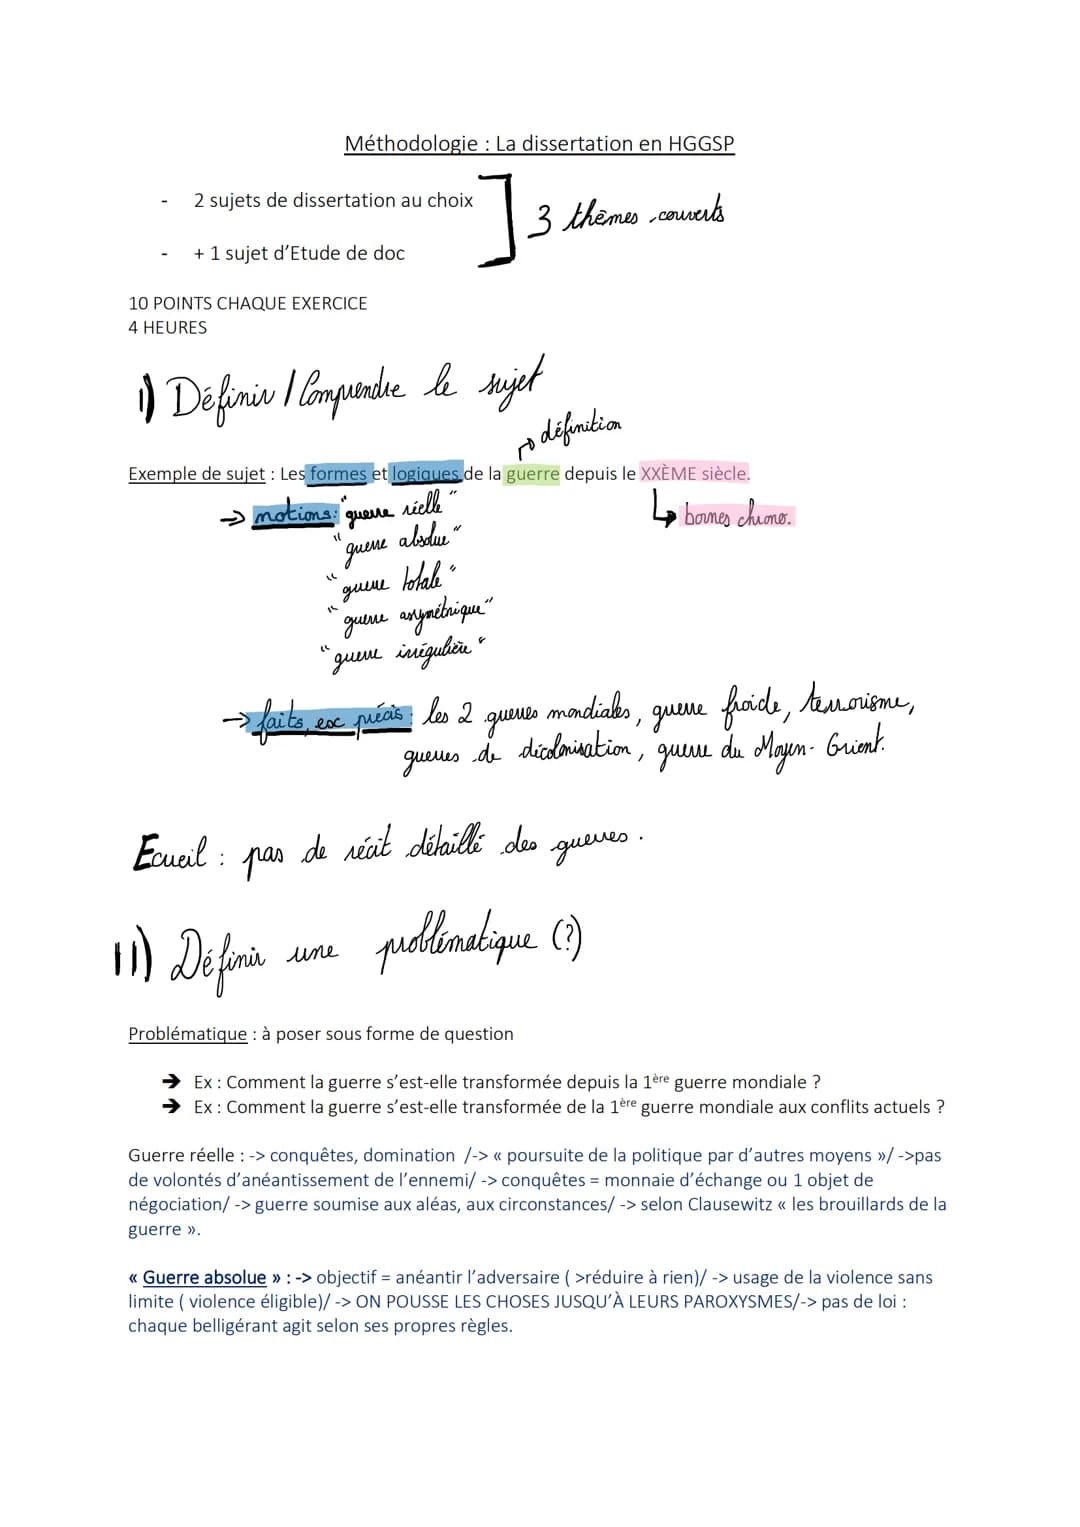 Méthodologie : La dissertation en HGGSP
- 2 sujets de dissertation au choix
- + 1 sujet d'Etude de doc
3 thèmes couverts
10 POINTS CHAQUE EXERCICE
4 HEURES
I) Définir / Comprendre le sujet
définition
Exemple de sujet : Les formes et logiques de la guerre depuis le XXÈME siècle.
→ notions: "guerre réelle"
bornes chrono.
"guerre absolue"
"guerre totale"
"guerre asymétrique"
"guerre irrégulière"
→ faits, ex précis : les 2 guerres mondiales, guerre froide, terrorisme,
guerres de décolonisation, guerre du Moyen-Orient.
Ecueil : pas de récit détaillé des guerres.
II) Définir une problématique (?)
Problématique : à poser sous forme de question
➔ Ex : Comment la guerre s'est-elle transformée depuis la 1ère guerre mondiale ?
➔ Ex : Comment la guerre s'est-elle transformée de la 1ère guerre mondiale aux conflits actuels ?
Guerre réelle : -> conquêtes, domination /-> « poursuite de la politique par d'autres moyens »/ ->pas
de volontés d'anéantissement de l'ennemi/ -> conquêtes = monnaie d'échange ou 1 objet de
négociation/ -> guerre soumise aux aléas, aux circonstances/ -> selon Clausewitz « les brouillards de la
guerre ».
« Guerre absolue » : -> objectif = anéantir l'adversaire ( >réduire à rien)/ -> usage de la violence sans
limite ( violence éligible)/ -> ON POUSSE LES CHOSES JUSQU'À LEURS PAROXYSMES/-> pas de loi :
chaque belligérant agit selon ses propres règles.